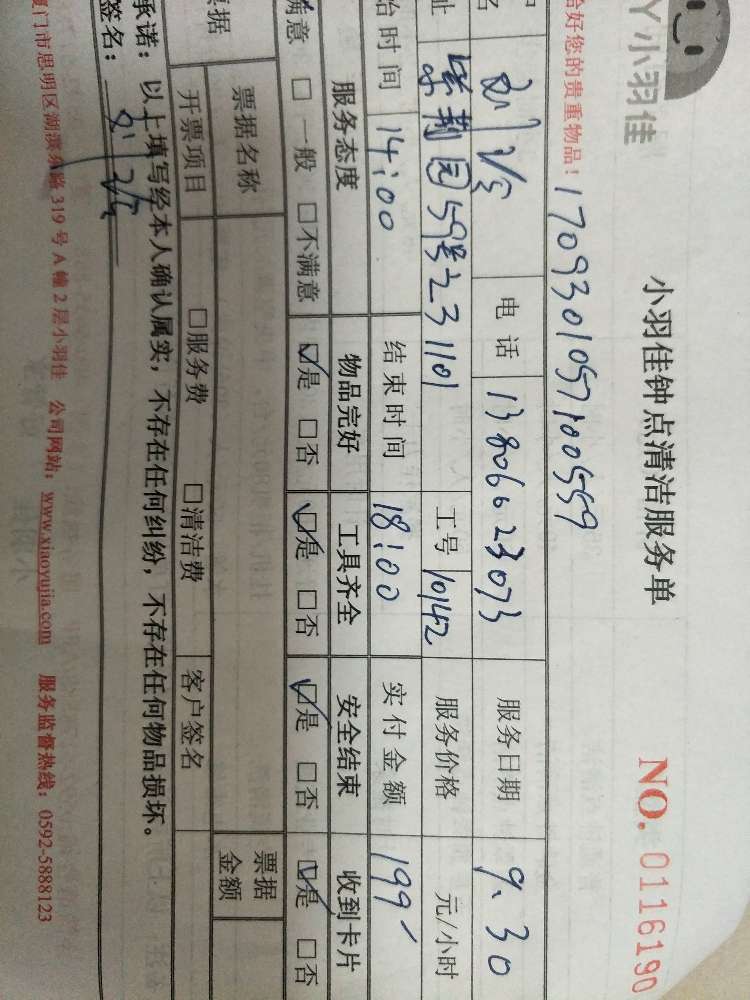 小羽佳
小羽佳钟点清洁服务单 NO. 0116190
给好您的贵重物品! 1709301057100559
电话 13806023073 服务日期 9.30
址 紫荆园59号231101 工号 10142 服务价格 元/小时
始时间 14:00 结束时间 18:00 实付金额 199
服务态度 物品完好 工具齐全 安全结束 收到卡片
满意 □一般 □不满意 ☑是 □否 ☑是 □否 ☑是 □否 ☑是 □否
票据 票据名称 票据金额
开票项目 □服务费 □清洁费 客户签名
承诺: 以上填写经本人确认属实,不存在任何纠纷,不存在任何物品损坏。
签名:
厦门市思明区湖滨东路 319 号 A 幢 2 层小羽佳 公司网站: www.xiaoyujia.com 服务监督热线: 0592-5888123